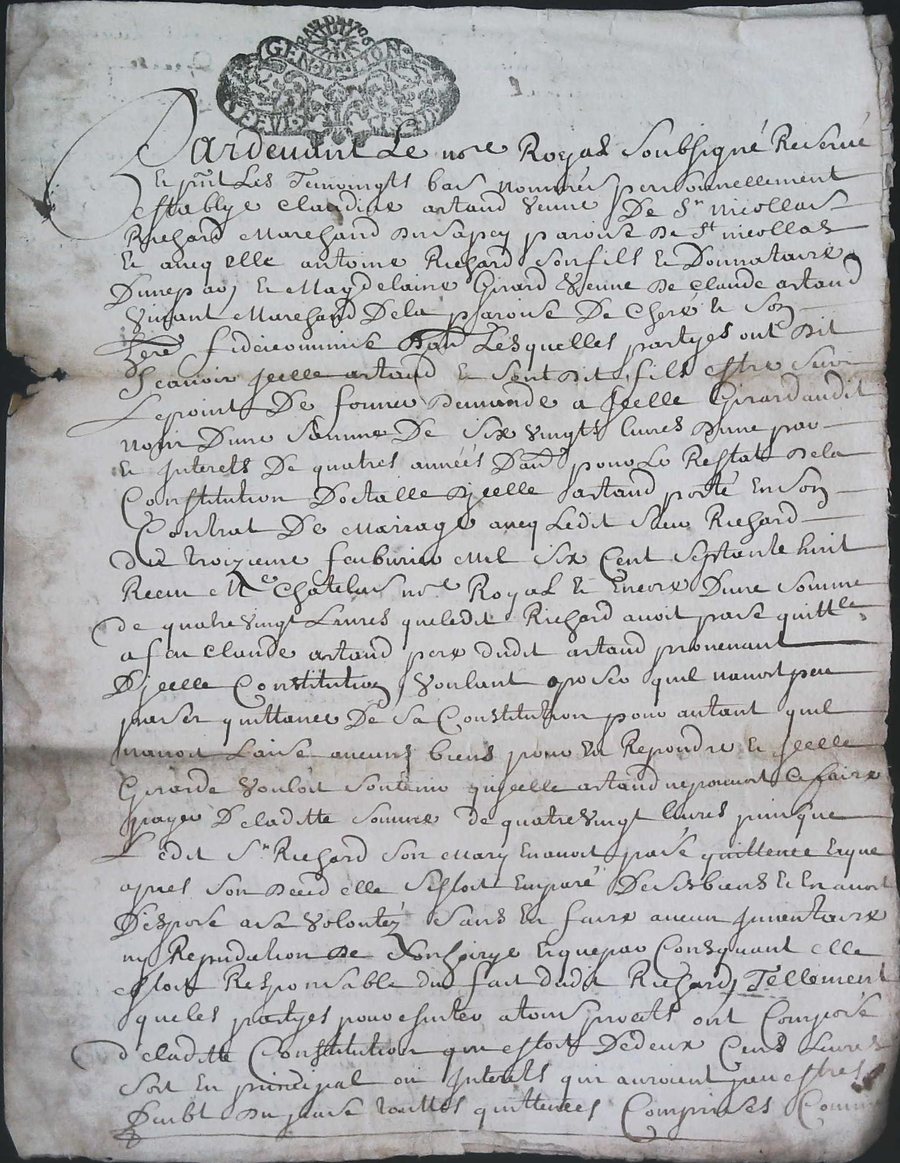 GEN. DE LYON
Pardevant Le no.re Royal Soubsigné Reservé
Et p.nt Les Temoingts bas nommés personnellement
establye Claudine artaud veuve De S.r Nicollas
Richard Marchand du parroise De St nicollas
Et avecq elle antoine Richard son fils Et Donnataire
Dunepart Et Magdelaine Girard Veuve De Claude artaud
Vivant Marchand Dela paroise De Cheré Et Son
here fideicommise Dau.e Lesquelles partyes ont Dit
Scavoir Jcelle artaud Et Sondit fils estre Sur
Lepoint De former Demande a Jcelle Girardaudit
nom Dune Somme De Six vingts livres Dune par
Et Interets De quatres années Dau.e pour Le Restat Dela
Constitution Doctalle Djcelle artaud porté En Son
Contrat De Mariage avecq Ledit Sieur Richard
du troizieme feubvrier Mil Six Cent Septante huit
Receu M.e Chatelus no.re Royal Et Encore Dune Somme
de quatrevingt Livres queledit Richard avoit passé quitt.ce
a feu Claude artaud pere dudit artaud provenant
Djcelle Constitution Voulant oposer quil navoit peu
passer quittance De Sa Constitution pour autant quil
navoit Laisé aucuns biens pour En Repondre Et Jcelle
Girarde Vouloit Soutenir qujcelle artaud nepouvoit Se faire
payer Deladitte Somme de quatrevingt livres puisque
Ledit S.r Richard Son Mary Enavoit passé quittence Etque
apres Son Deced elle Sestoit Emparé De Ses biens Et En avoit
Disposé asa Volontéz Sans En faire aucun Jnventaire
ny Repudiation De Etquepar Consquant elle
estoit Responsable du fait dudit Richard, Tellement
queles partyes pour esviter atous procets ont Composé
deladitte Constitution qui estoit Dedeux Cens Livres
Soit En principal ou Interets qui auroient peu estres
Deubt Du passé touttes quittences Comprises Comm